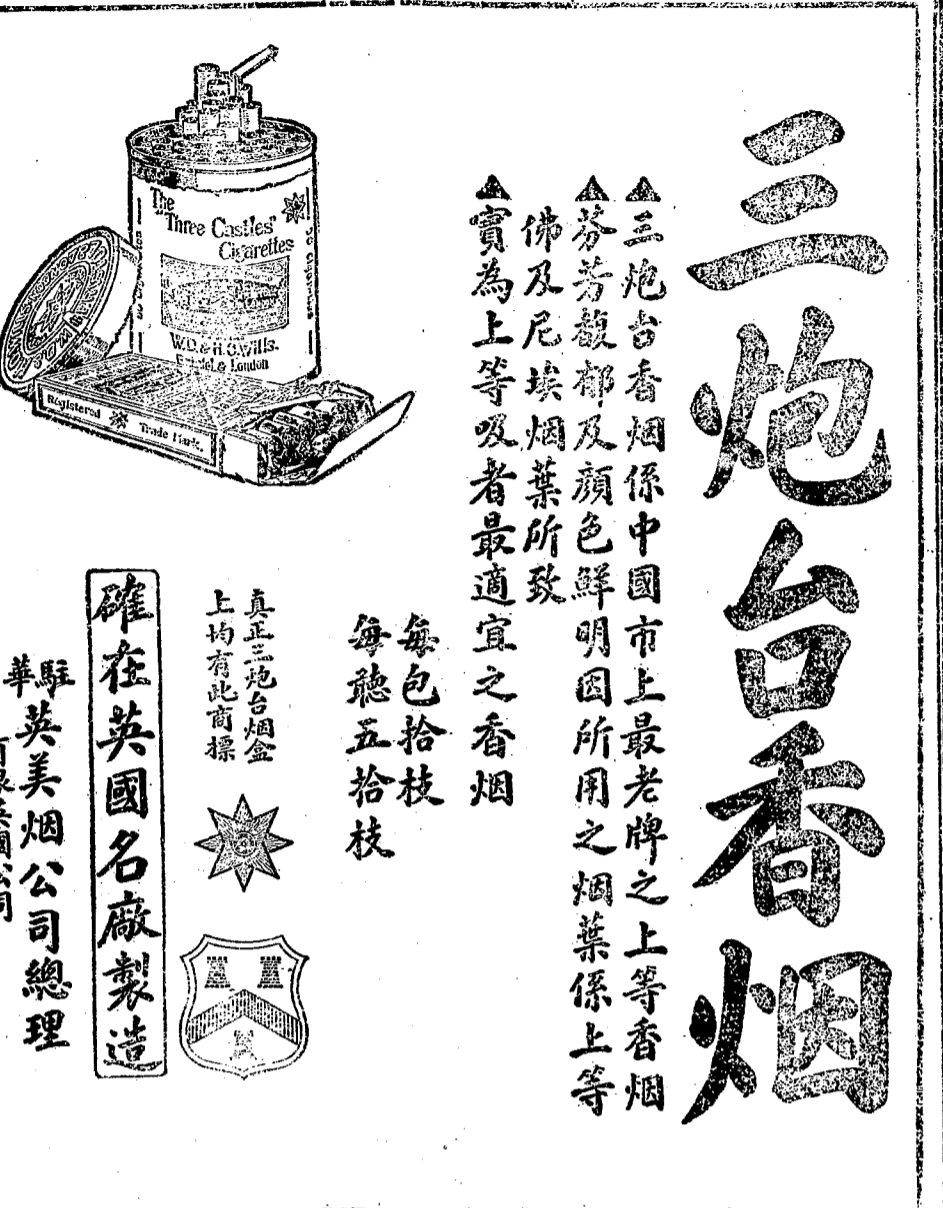 三炮台香烟
▲三炮台香烟係中國市上最老牌之上等香烟
▲芬芳馥郁及顏色鮮明因所用之烟葉係上等
佛及尼埃烟葉所致
▲實為上等吸者最適宜之香烟
每包拾枝
每聽五拾枝
真正三炮台烟盒
上均有此商標
確在英國名廠製造
駐華英美烟公司總理
有限英國公司
The
"Three Castles"
Cigarettes
W.D. & H.O. Wills.
Bristol & London
Registered
Trade Mark.